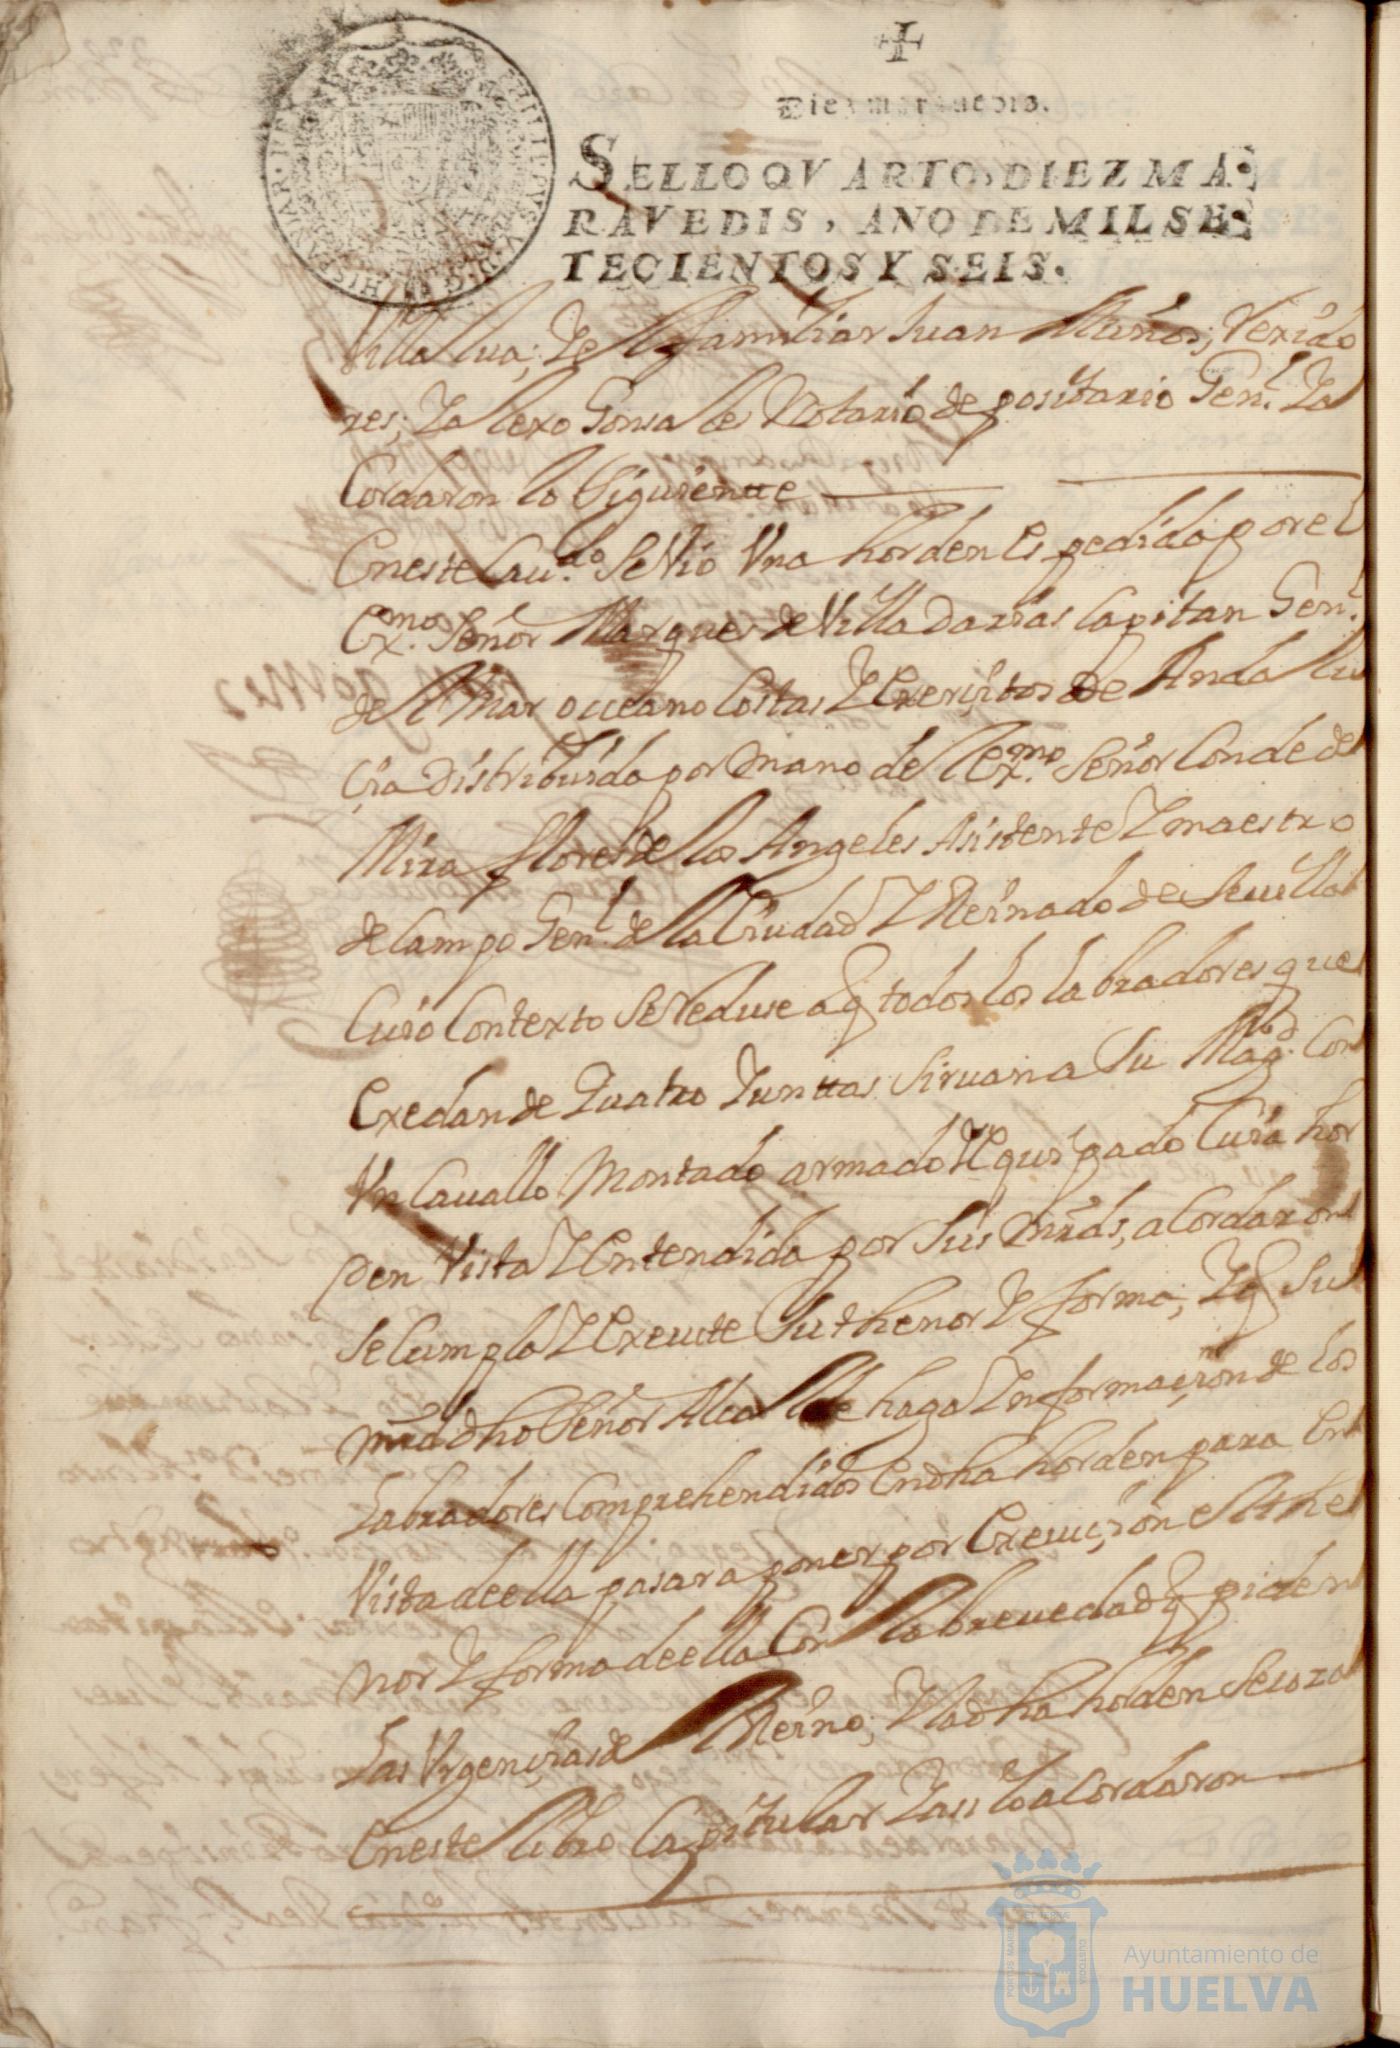 Diez maravedis.
SELLO QVARTO, DIEZ MA-
RAVEDIS, AÑO DE MIL SE-
TECIENTOS Y SEIS.
HISPANIAR. REX
PHILIPPVS V. D. G.
Villalua; Y el familiar Juan Muños; Rexido
res; Y alexo Gonsales Notario depositario Gen.l Y a
Cordaron lo Siguientte
Eneste Cau.do Se Vio Vna horden Espedida por el
Ex.mo Señor Marques de Villa Darias Capitan Gen.l
del Mar occeano Costas Y Exerçitos de Andalu
çia Distribuida por mano del Ex.mo Señor Conde de
Mira flores de los Angeles Asistente Y maestro
de Campo Gen.l de la Ciudad Y Reinado de Seuilla
Cuio Contexto Se Reduse a q todos los labradores que
Exedan de Quatro Junttas Siruan a Su Mag.d Con
Vn Cauallo Montado armado Y Equipado Cuia hor
den Vista Y Entendida por Sus mrds, acordaron
Se Cumpla Y Execute Su thenor Y forma; Y q Su
mrd dho Señor Alcalde haga Informaçion de los
Labradores Comprehendidos En dha horden para En
Vista de ella pasar a poner por Execuçion el the
nor Y forma de ella Con la breuedad q piden
Las Vrgençias de el Reino; Y la dha horden Se coza
Eneste Libro Capitular Y asi lo acordaron
Ayuntamiento de
HUELVA
PORTUS MARIS
ET TERRAE
CUSTODIA